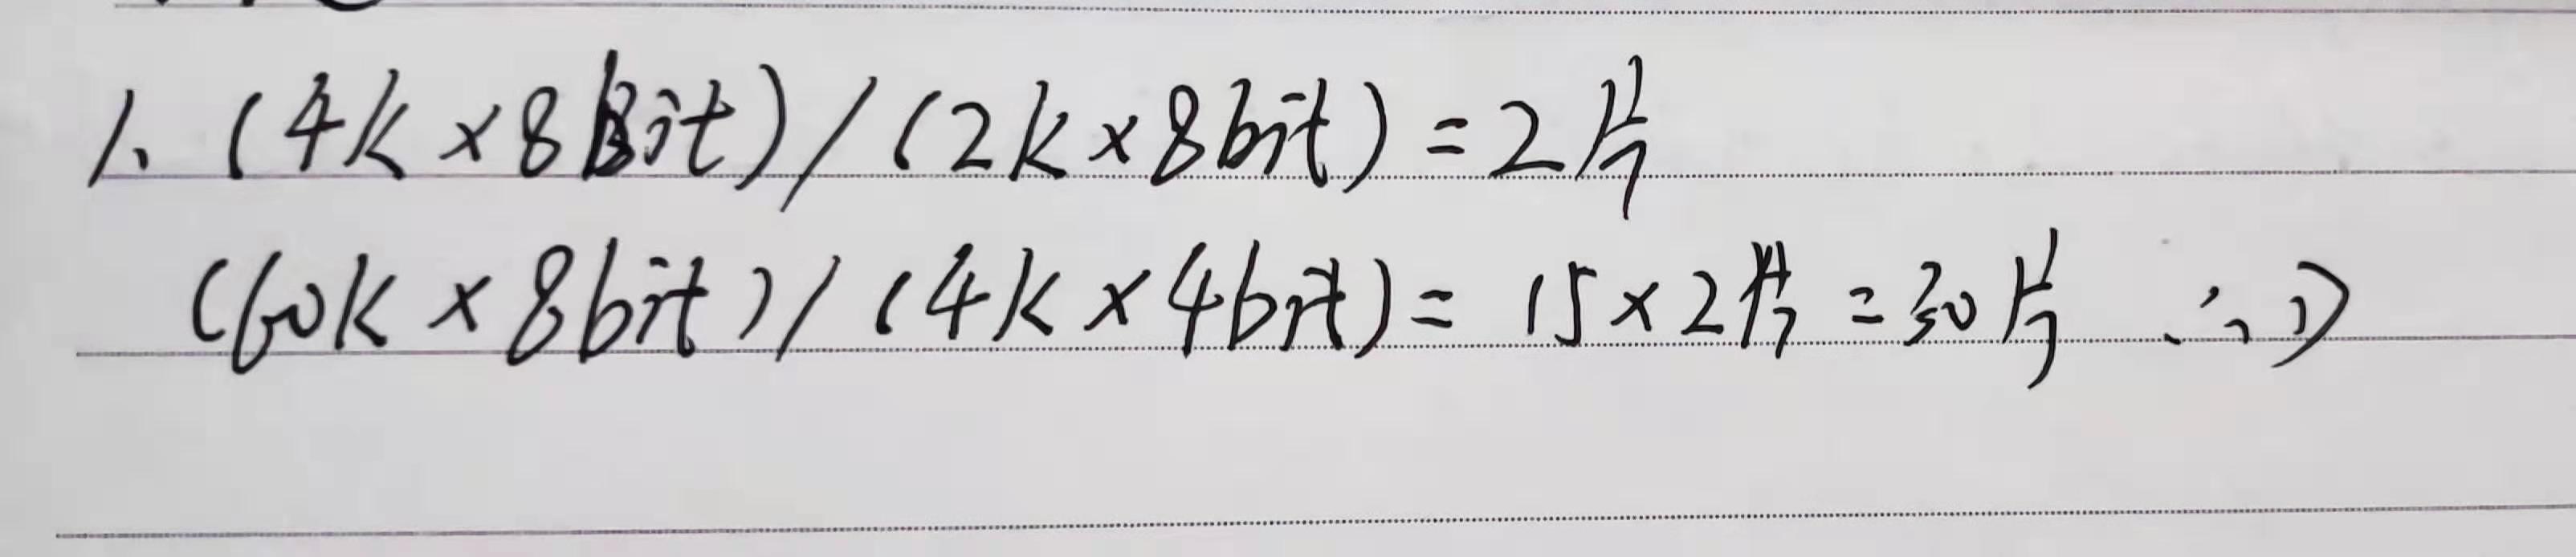 1. (4k×8Bit)/(2k×8bit)=2片
(60k×8bit)/(4k×4bit)=15×2片=30片 ∴ D